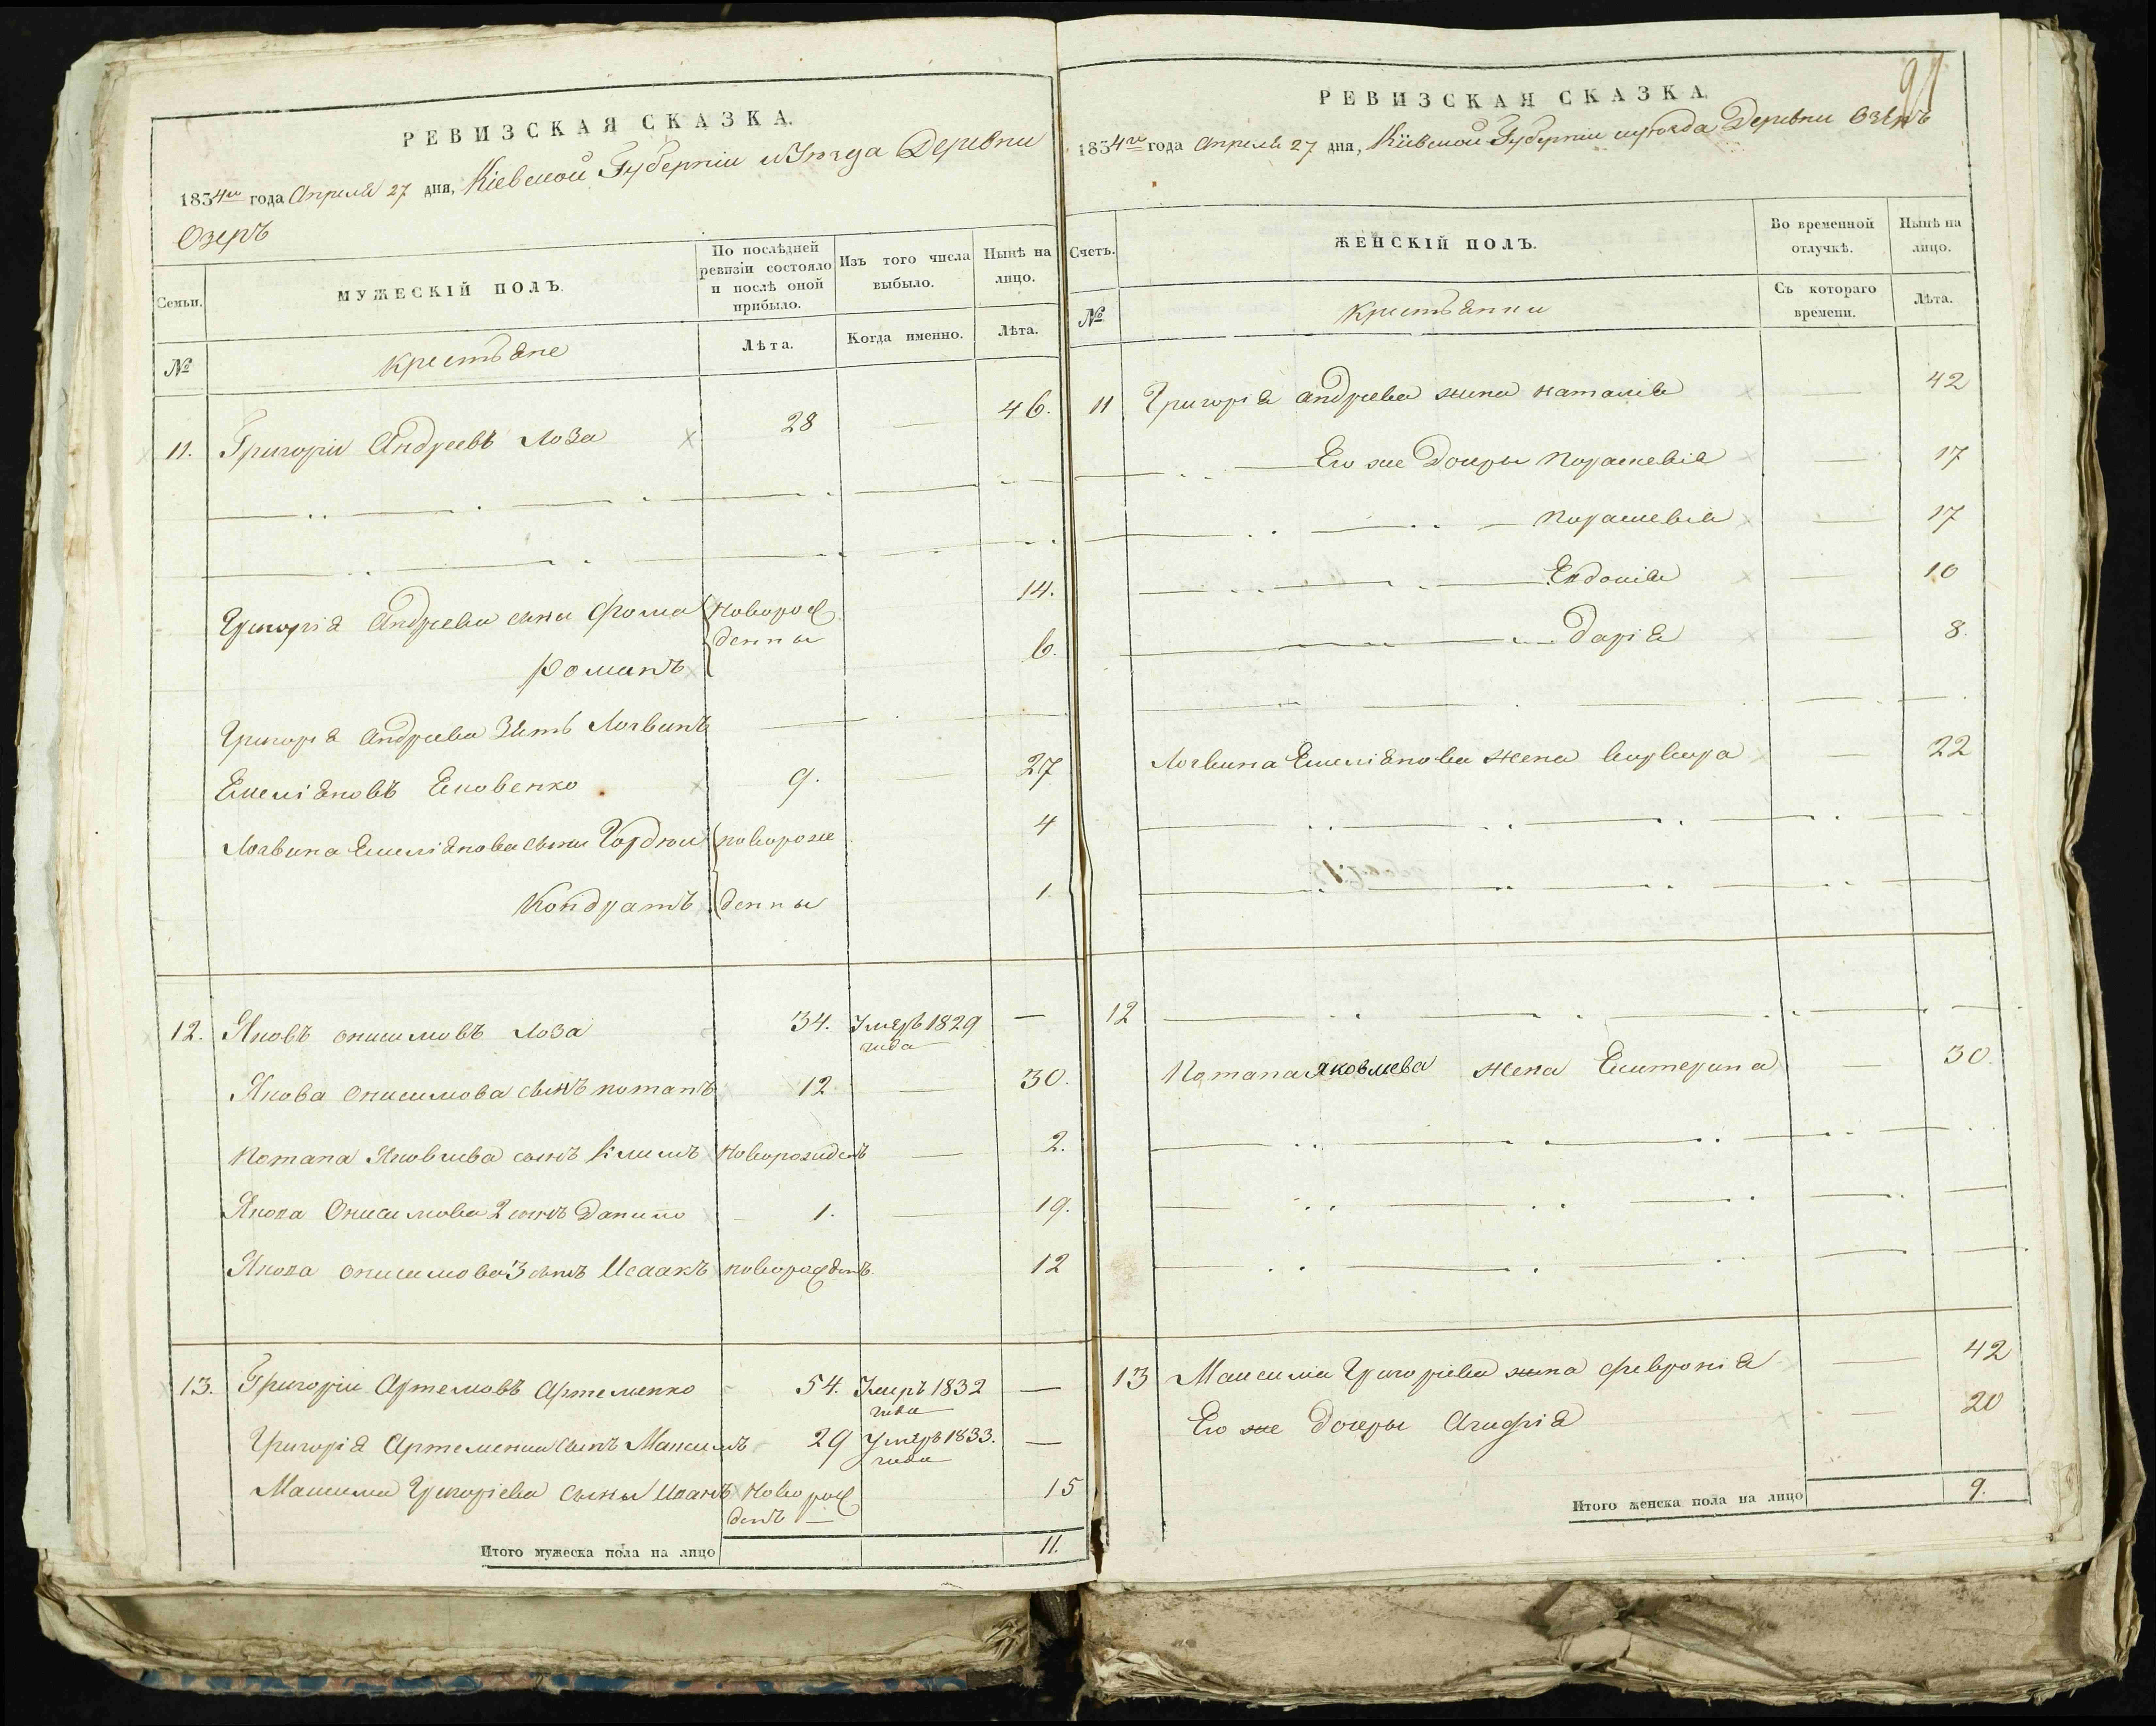 РЕВИЗСКАЯ СКАЗКА.
1834го года Апреля 27 дня, Кіевской Губерніи и Уезда Деревни
Озеръ
Семьи.
МУЖЕСКІЙ ПОЛЪ.
По послѣдней ревизіи состояло и послѣ оной прибыло.
Изъ того числа выбыло.
Нынѣ на лицо.
№
крестьяне
Лѣта.
Когда именно.
Лѣта.
11. Григорій Андреевъ Лоза 28 — 46.
Григорія Андреева сыны Фома новорож 14.
денны
Романъ 6.
Григорія Андреева зять Логвинъ
Емеліяновъ Яковенко 9. — 27
Логвина Емеліянова сыны Гордей новорож 4
Кондратъ денны 1
12. Яковъ Онисимовъ Лоза 34. Умеръ 1829 —
года
Якова Онисимова сынъ потапъ 12 — 30.
Потапа Яковлева сынъ Климъ новорожденъ — 2.
Якова Онисимова 2 сынъ Данило 1. — 19.
Якова Онисимова 3 сынъ Исаакъ новорожденъ. 12
13. Григорій Артемовъ Артеменко 54. Умеръ 1832 —
года
Григорія Артеменка сынъ Максимъ 29 Умеръ 1833. —
года
Максима Григоріева сыны Иванъ Новорож 15
денъ —
Итого мужеска пола на лицо 11.
91
РЕВИЗСКАЯ СКАЗКА.
1834го года Апреля 27 дня, Кіевской Губерніи и уезда Деревни Озеръ
Счетъ.
ЖЕНСКІЙ ПОЛЪ.
Во временной отлучкѣ.
Нынѣ на лицо.
№
крестьянки
Съ котораго времени.
Лѣта.
11 Григорія андреева жена наталія — 42
Его же Дочеры Параскевія — 17
Параскевія — 17
Евдокія — 10
Дарія — 8.
Логвина Емеліянова жена варвара — 22
12
Потапа яковлева жена Екатерина — 30.
13 Максима Григоріева жена феvронія — 42
Его же дочеры Агафія — 20
Итого женска пола на лицо 9.